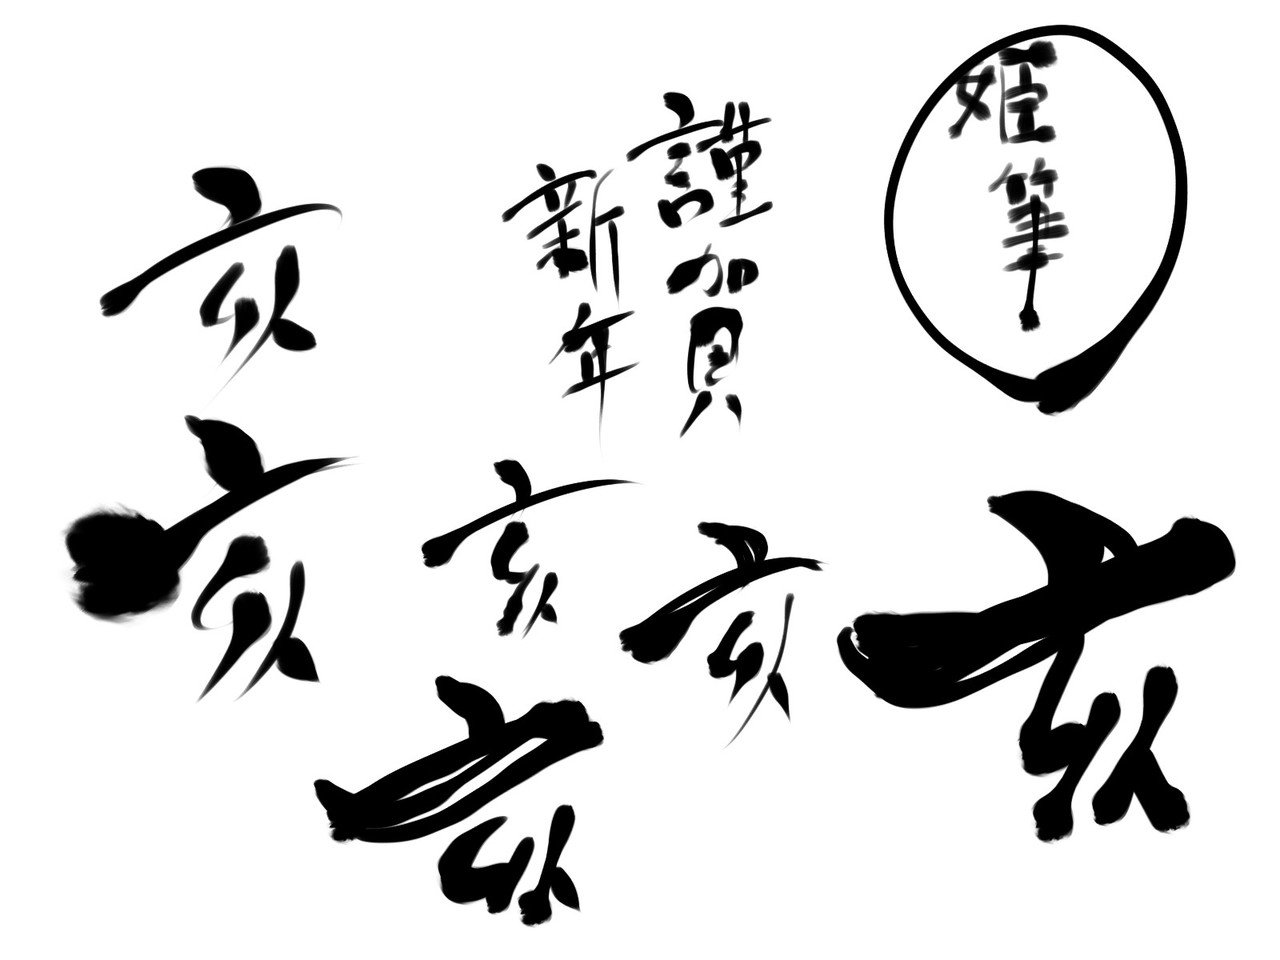 姫筆
謹賀
新年
亥
亥
亥
亥
亥
亥